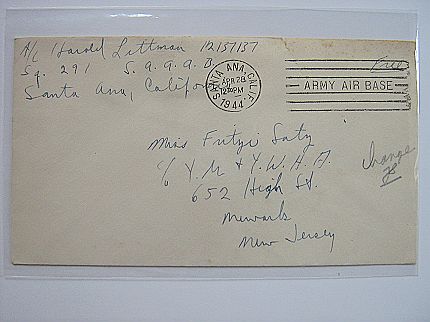 A/C Harold Littman 12137137
Sq. 291 S.A.A.A.B.
Santa Ana, California
SANTA ANA, CALIF.
APR 28
12 30 PM
1944
Free
ARMY AIR BASE
Miss Fritzi Satz
c/o Y.M. & Y.W.H.A.
652 High St.
Newark
New Jersey
Change